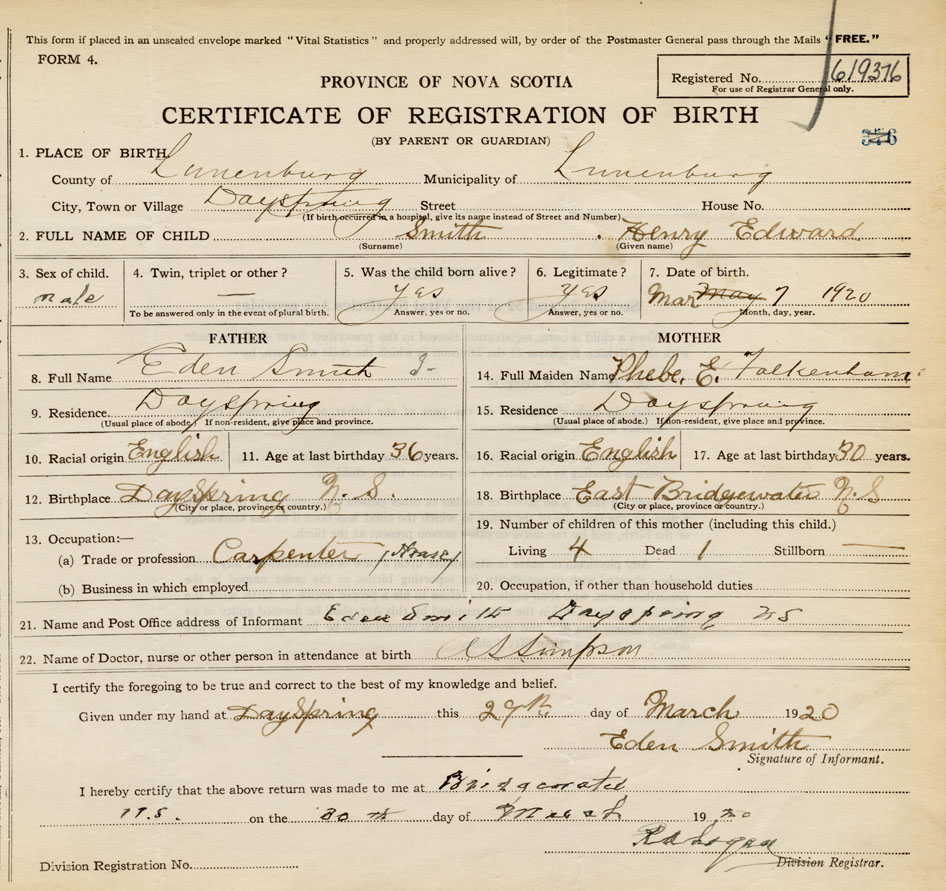 This form if placed in an unsealed envelope marked "Vital Statistics" and properly addressed will, by order of the Postmaster General pass through the Mails "FREE."
FORM 4.
Registered No. 619376
For use of Registrar General only.
PROVINCE OF NOVA SCOTIA
CERTIFICATE OF REGISTRATION OF BIRTH
(BY PARENT OR GUARDIAN)
1. PLACE OF BIRTH
County of Lunenburg Municipality of Lunenburg
City, Town or Village Dayspring Street House No.
(If birth occurred in a hospital, give its name instead of Street and Number)
2. FULL NAME OF CHILD Smith Henry Edward
(Surname) (Given name)
3. Sex of child. 4. Twin, triplet or other? 5. Was the child born alive? 6. Legitimate? 7. Date of birth.
male — yes yes Mar May 7 1920
To be answered only in the event of plural birth. Answer, yes or no. Answer, yes or no. Month, day, year.
FATHER MOTHER
8. Full Name Eden Smith 14. Full Maiden Name Phebe. E. Falkenham
9. Residence Dayspring 15. Residence Dayspring
(Usual place of abode.) If non-resident, give place and province. (Usual place of abode.) If non-resident, give place and province.
10. Racial origin English 11. Age at last birthday 36 years. 16. Racial origin English 17. Age at last birthday 30 years.
12. Birthplace DaySpring N. S. 18. Birthplace East Bridgewater N S
(City or place, province or country.) (City or place, province or country.)
13. Occupation:— 19. Number of children of this mother (including this child.)
(a) Trade or profession Carpenter (House) Living 4 Dead 1 Stillborn —
(b) Business in which employed 20. Occupation, if other than household duties
21. Name and Post Office address of Informant Eden Smith Dayspring NS
22. Name of Doctor, nurse or other person in attendance at birth Simpson
I certify the foregoing to be true and correct to the best of my knowledge and belief.
Given under my hand at DaySpring this 29th day of March 1920
Eden Smith
Signature of Informant.
I hereby certify that the above return was made to me at Bridgewater
N.S. on the 30th day of March 1920
Division Registration No. Division Registrar.